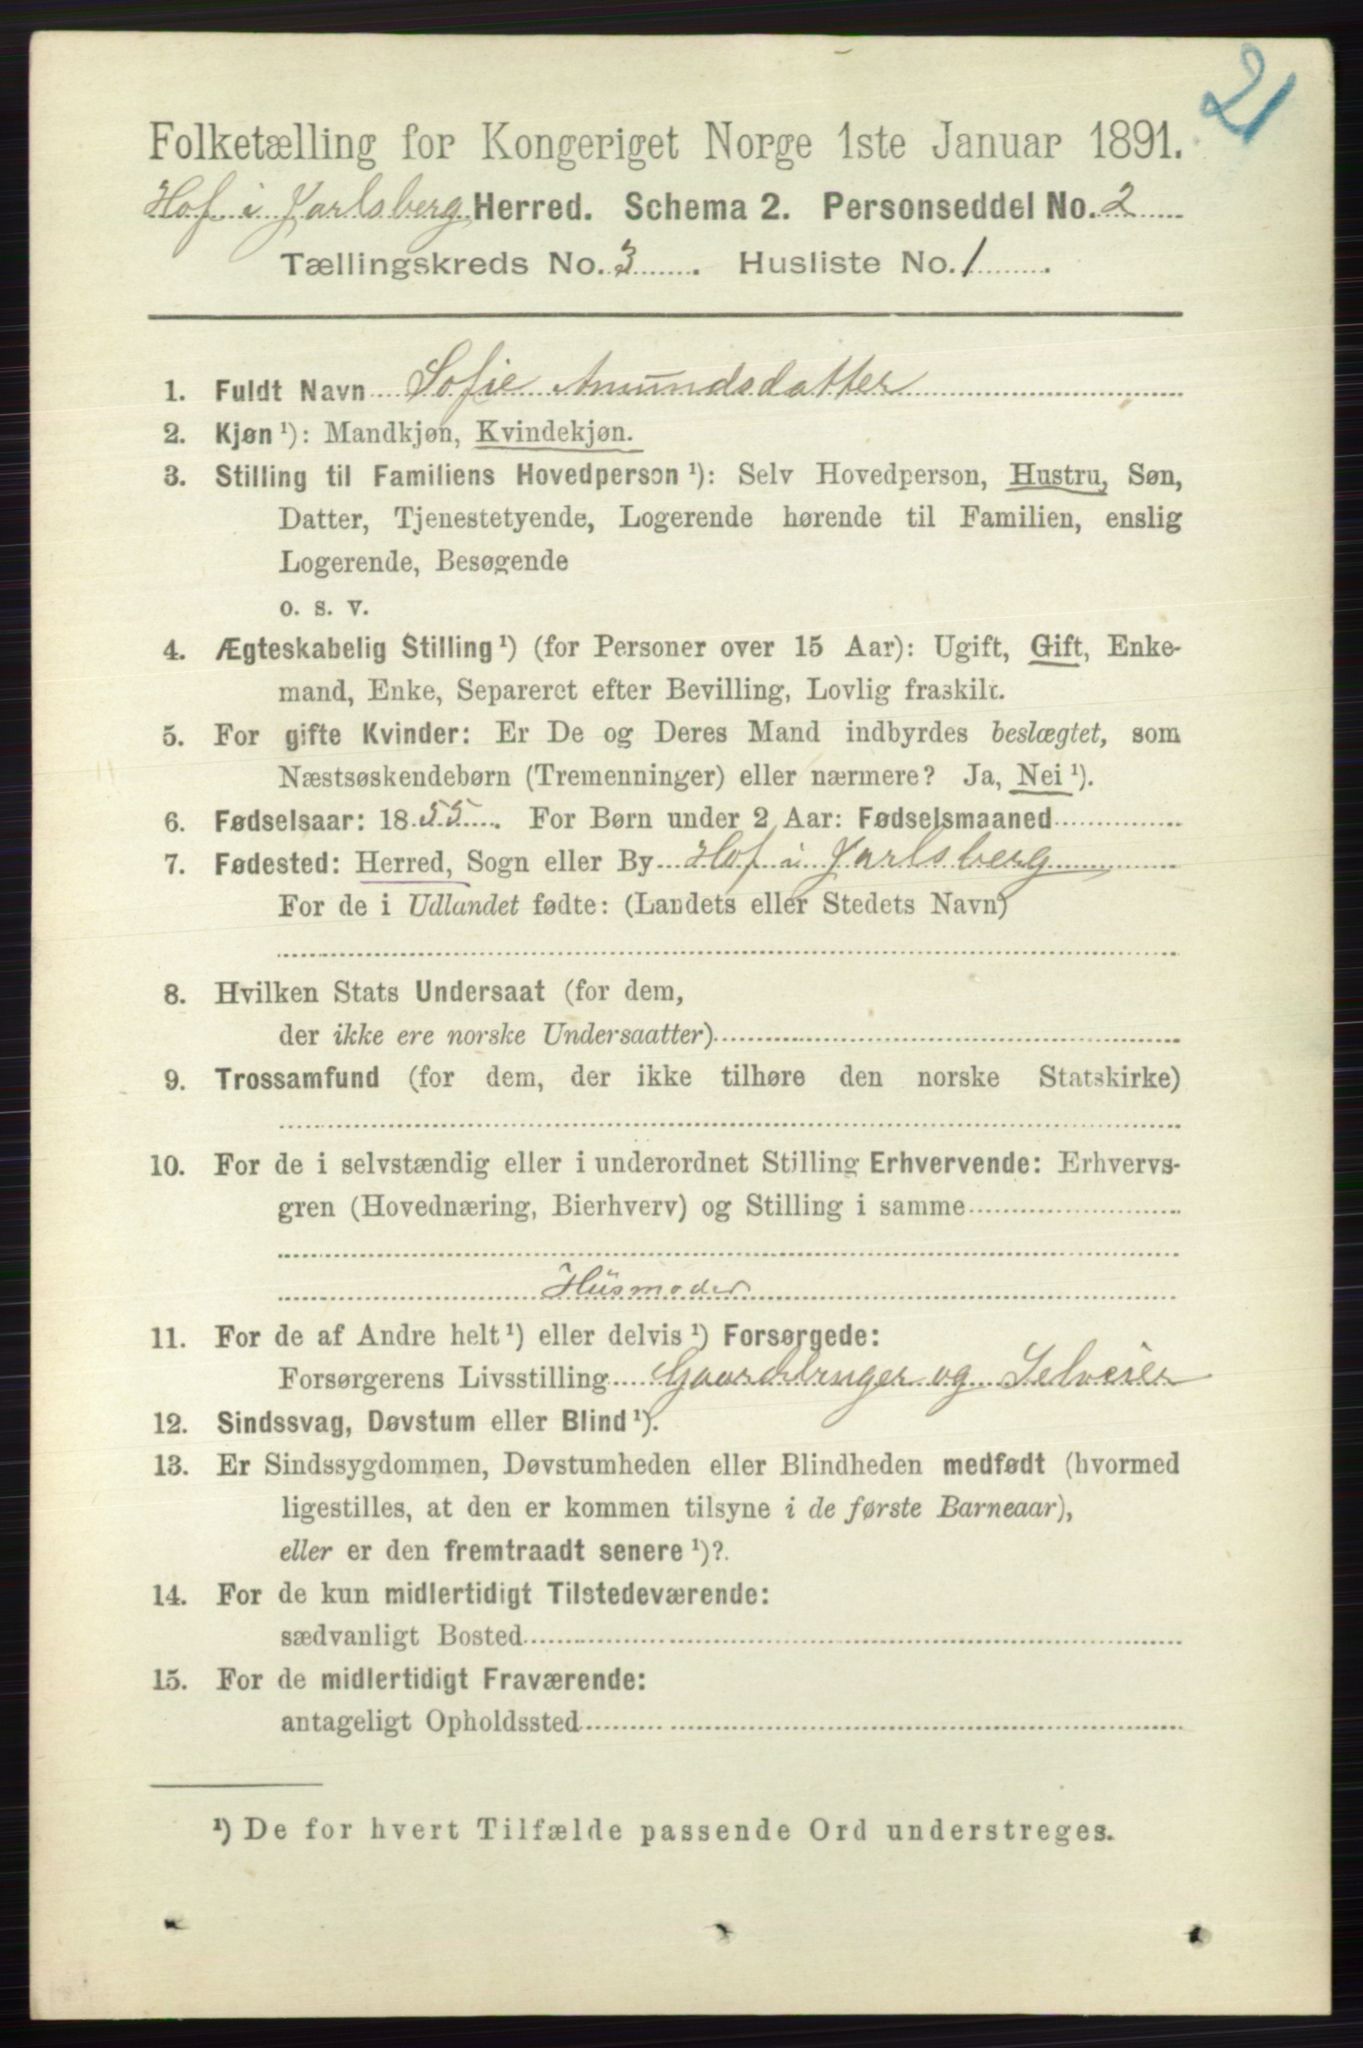 21
Folketælling for Kongeriget Norge 1ste Januar 1891.
Hof i Jarlsberg Herred. Schema 2. Personseddel No. 2
Tællingskreds No. 3. Husliste No. 1.
1. Fuldt Navn Sofie Amundsdatter
2. Kjøn ¹): Mandkjøn, Kvindekjøn.
3. Stilling til Familiens Hovedperson ¹): Selv Hovedperson, Hustru, Søn,
Datter, Tjenestetyende, Logerende hørende til Familien, enslig
Logerende, Besøgende
o. s. v.
4. Ægteskabelig Stilling ¹) (for Personer over 15 Aar): Ugift, Gift, Enke-
mand, Enke, Separeret efter Bevilling, Lovlig fraskilt.
5. For gifte Kvinder: Er De og Deres Mand indbyrdes beslægtet, som
Næstsøskendebørn (Tremenninger) eller nærmere? Ja, Nei ¹).
6. Fødselsaar: 1855. For Børn under 2 Aar: Fødselsmaaned
7. Fødested: Herred, Sogn eller By Hof i Jarlsberg
For de i Udlandet fødte: (Landets eller Stedets Navn)
8. Hvilken Stats Undersaat (for dem,
der ikke ere norske Undersaatter)
9. Trossamfund (for dem, der ikke tilhøre den norske Statskirke)
10. For de i selvstændig eller i underordnet Stilling Erhvervende: Erhvervs-
gren (Hovednæring, Bierhverv) og Stilling i samme
Husmoder
11. For de af Andre helt ¹) eller delvis ¹) Forsørgede:
Forsørgerens Livsstilling Gaardbruger og Selveier
12. Sindssvag, Døvstum eller Blind ¹).
13. Er Sindssygdommen, Døvstumheden eller Blindheden medfødt (hvormed
ligestilles, at den er kommen tilsyne i de første Barneaar),
eller er den fremtraadt senere ¹)?.
14. For de kun midlertidigt Tilstedeværende:
sædvanligt Bosted
15. For de midlertidigt Fraværende:
antageligt Opholdssted
¹) De for hvert Tilfælde passende Ord understreges.